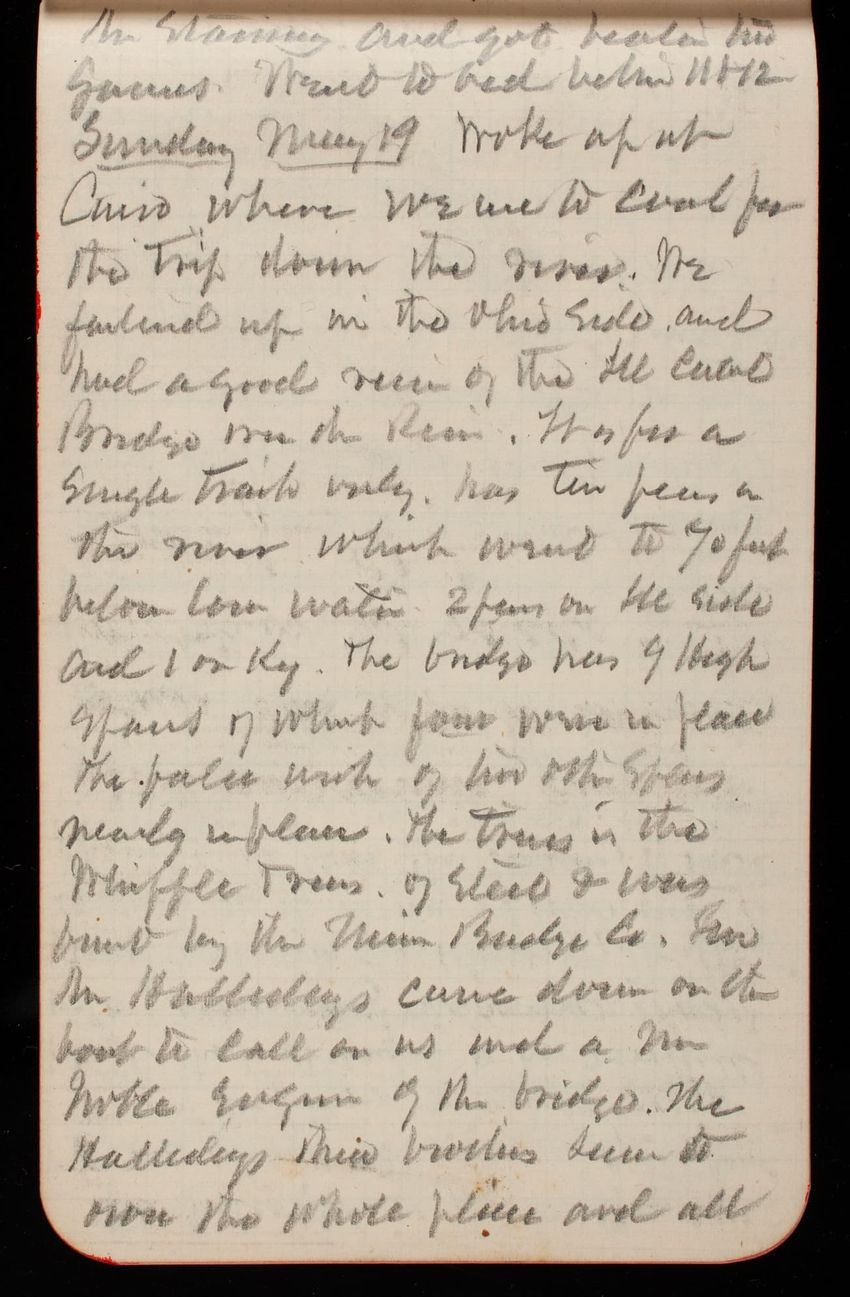 and got beaten two
games. Went to bed between 11 & 12
Sunday May 19 Woke up at
Cairo where we are to coal for
the trip down the river. We
up in the Ohio side and
had a good view of the Ill Cent
Bridge over the River. It is for a
single track only. has ten piers in
the river which went to 70 feet
below low water 2 piers on Ill side
and 1 on Ky. The bridge has 9 High
spans of which four were in place
The false work of two other spans
nearly in place. The truss is the
Whipple Truss. of Steel & was
built by the Union Bridge Co. Two
Mr Hallidays came down on the
boat to call on us and a Mr
Noble Engineer of the bridge. The
Hallidays three brothers seem to
own the whole place and all